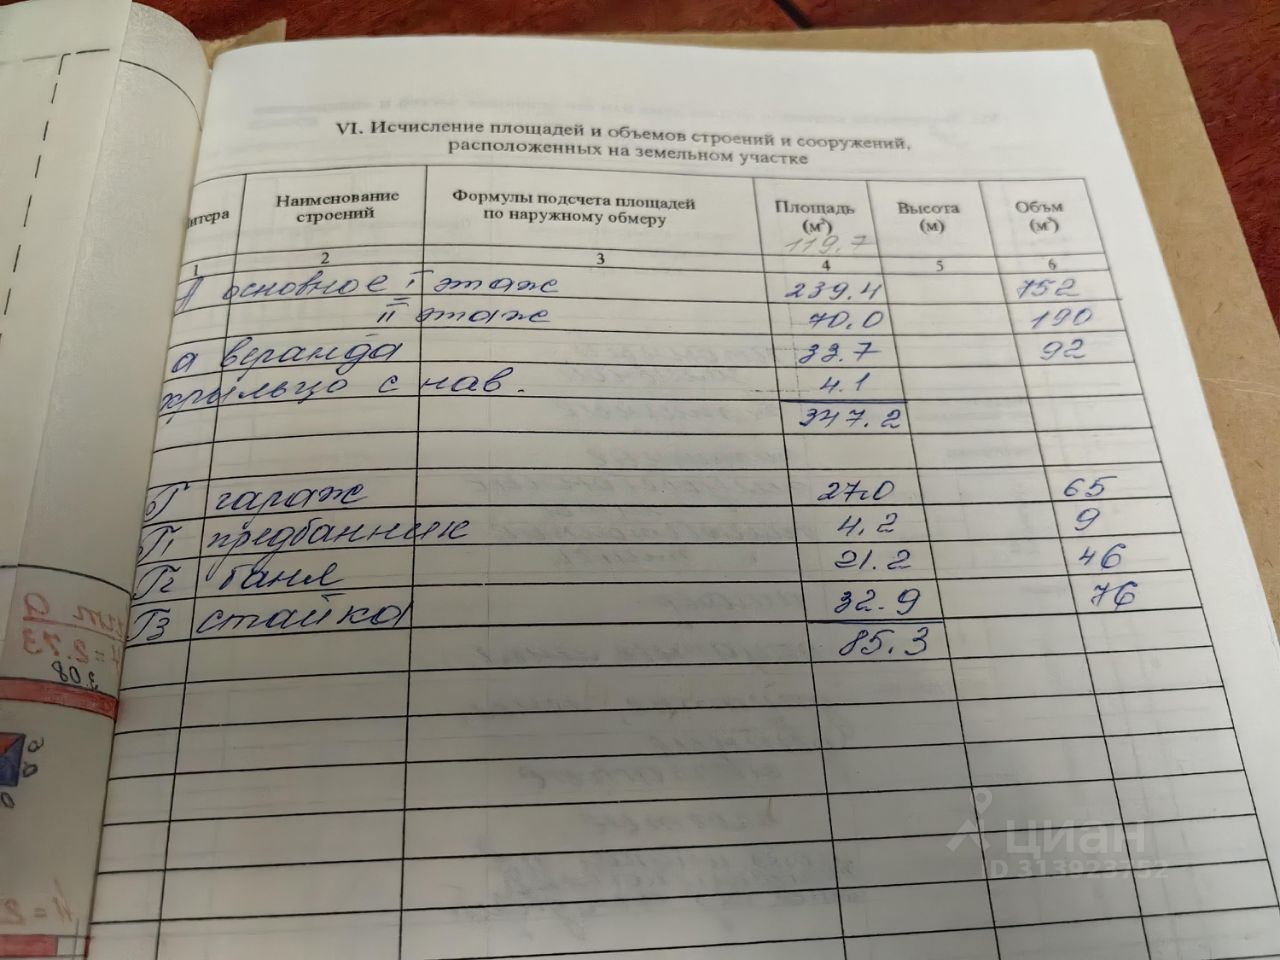 VI. Исчисление площадей и объемов строений и сооружений,
расположенных на земельном участке
итера Наименование строений Формулы подсчета площадей по наружному обмеру Площадь (м²) Высота (м) Объм (м³)
119.7
1 2 3 4 5 6
А основное I этаж 239.4 752
II этаж 70.0 190
а веранда 33.7 92
крыльцо с нав. 4.1
347.2
Г гараж 27.0 65
Г1 предбанник 4.2 9
Г2 баня 21.2 46
Г3 стайка 32.9 76
85.3
лит а
H=2.73
3.08
H=2
циан
ID 313923752